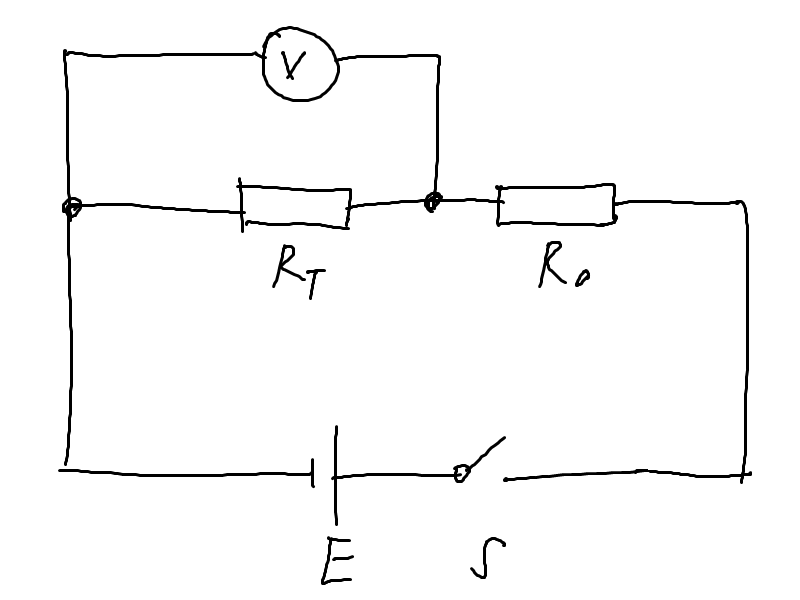 V
R_T
R_0
E
S